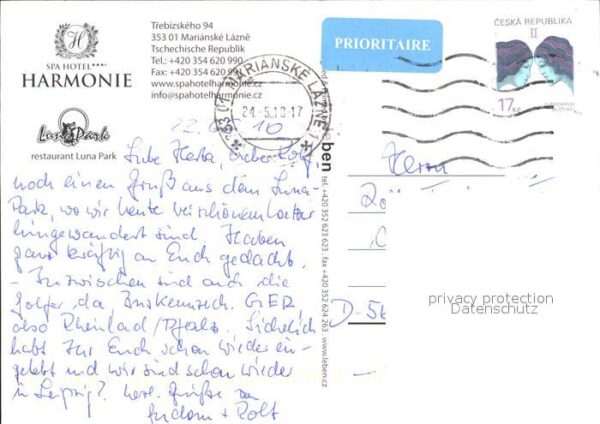 SPA HOTEL****
HARMONIE
Třebízského 94
353 01 Mariánské Lázně
Tschechische Republik
Tel.: +420 354 620 990
Fax: +420 354 620 99
www.spahotelharmonie.cz
info@spahotelharmonie.cz
Luna Park
restaurant Luna Park
PRIORITAIRE
ČESKÁ REPUBLIKA
II
17 Kč
353 01 MARIÁNSKÉ LÁZNĚ 1
10
Liebe Herta, lieber Rolf,
noch einen Gruß aus dem Luna-
Park, wo wir heute bei schönem Wetter
hingewandert sind. Haben
ganz kräftig an Euch gedacht.
- Inzwischen sind auch die
Golfer da. Buskennzeich. GER
also Rheinland/Pfalz. Sicherlich
habt Ihr Euch schon wieder ein-
gelebt und wir sind schon wieder
in Leipzig? Herzl. Grüße von
+ Rolf
Herrn
D-56
ben tel. +420 352 623 623, fax +420 352 624 263, www.leben.cz
privacy protection
Datenschutz